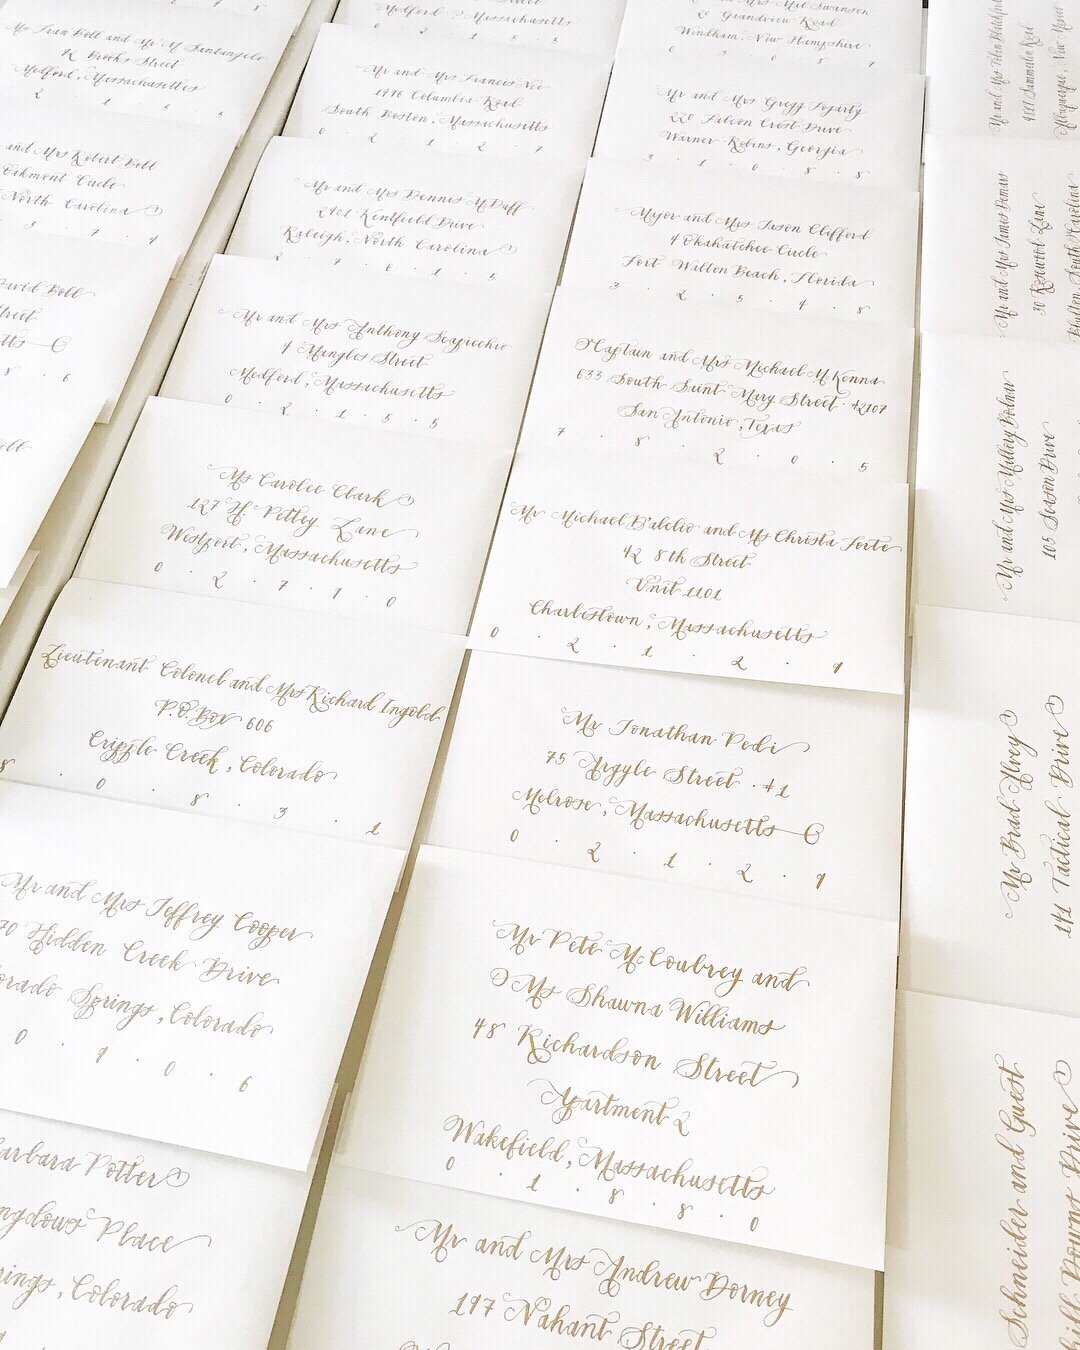 Street
Ms Jean Bell and Mr M Santangelo
12 Brooks Street
Medford, Massachusetts
and Mrs Robert Bell
Oakmont Circle
North Carolina
David Bell
Street
8 . 6
Medford, Massachusetts
Mr and Mrs Francis Noe
1776 Columbia Road
South Boston, Massachusetts
0 . 2 . 1 . 2 . 7
Mr and Mrs Dennis McDuff
2401 Kentfield Drive
Raleigh, North Carolina
2 . 7 . 6 . 1 . 5
Mr and Mrs Anthony Scapicchio
4 Mangles Street
Medford, Massachusetts
0 . 2 . 1 . 5 . 5
Ms Carolee Clark
127 H Petley Lane
Westport, Massachusetts
0 . 2 . 7 . 9 . 0
Lieutenant Colonel and Mrs Richard Ingold
P.O. Box 606
Cripple Creek, Colorado
8 . 0 . 8 . 3 . 1
Mr and Mrs Jeffrey Cooper
70 Hidden Creek Drive
orado Springs, Colorado
0 . 9 . 0 . 6
arbara Potter
Place
rings, Colorado
Mrs Mal Swanson
20 Grandview Road
Windham, New Hampshire
0 . 3 . 0 . 8 . 7
Mr and Mrs Gregg Fogarty
220 Falcon Crest Drive
Warner Robins, Georgia
3 . 1 . 0 . 8 . 8
Major and Mrs Jason Clifford
4 Okahatchee Circle
Fort Walton Beach, Florida
3 . 2 . 5 . 4 . 8
Captain and Mrs Michael McKenna
633 South Saint Mary Street . #2107
San Antonio, Texas
7 . 8 . 2 . 0 . 5
Mr Michael D'alelio and Ms Christa Forte
42 8th Street
Unit 1101
Charlestown, Massachusetts
0 . 2 . 1 . 2 . 9
Mr Jonathan Pedi
75 Argyle Street . #1
Melrose, Massachusetts
0 . 2 . 1 . 2 . 9
Mr Pete McCoubrey and
Ms Shawna Williams
48 Richardson Street
Apartment 2
Wakefield, Massachusetts
0 . 1 . 8 . 8 . 0
Mr and Mrs Andrew Dorney
197 Nahant Street
Albuquerque, New
Mr and Mrs James Demars
30 Rosewood Lane
Bluffton, South Carolina
Mr and Mrs Mallory Bolnar
105 Season Drive
Mr Brad Alvey
142 Tactical Drive
Schneider and Guest
hill Downs Drive